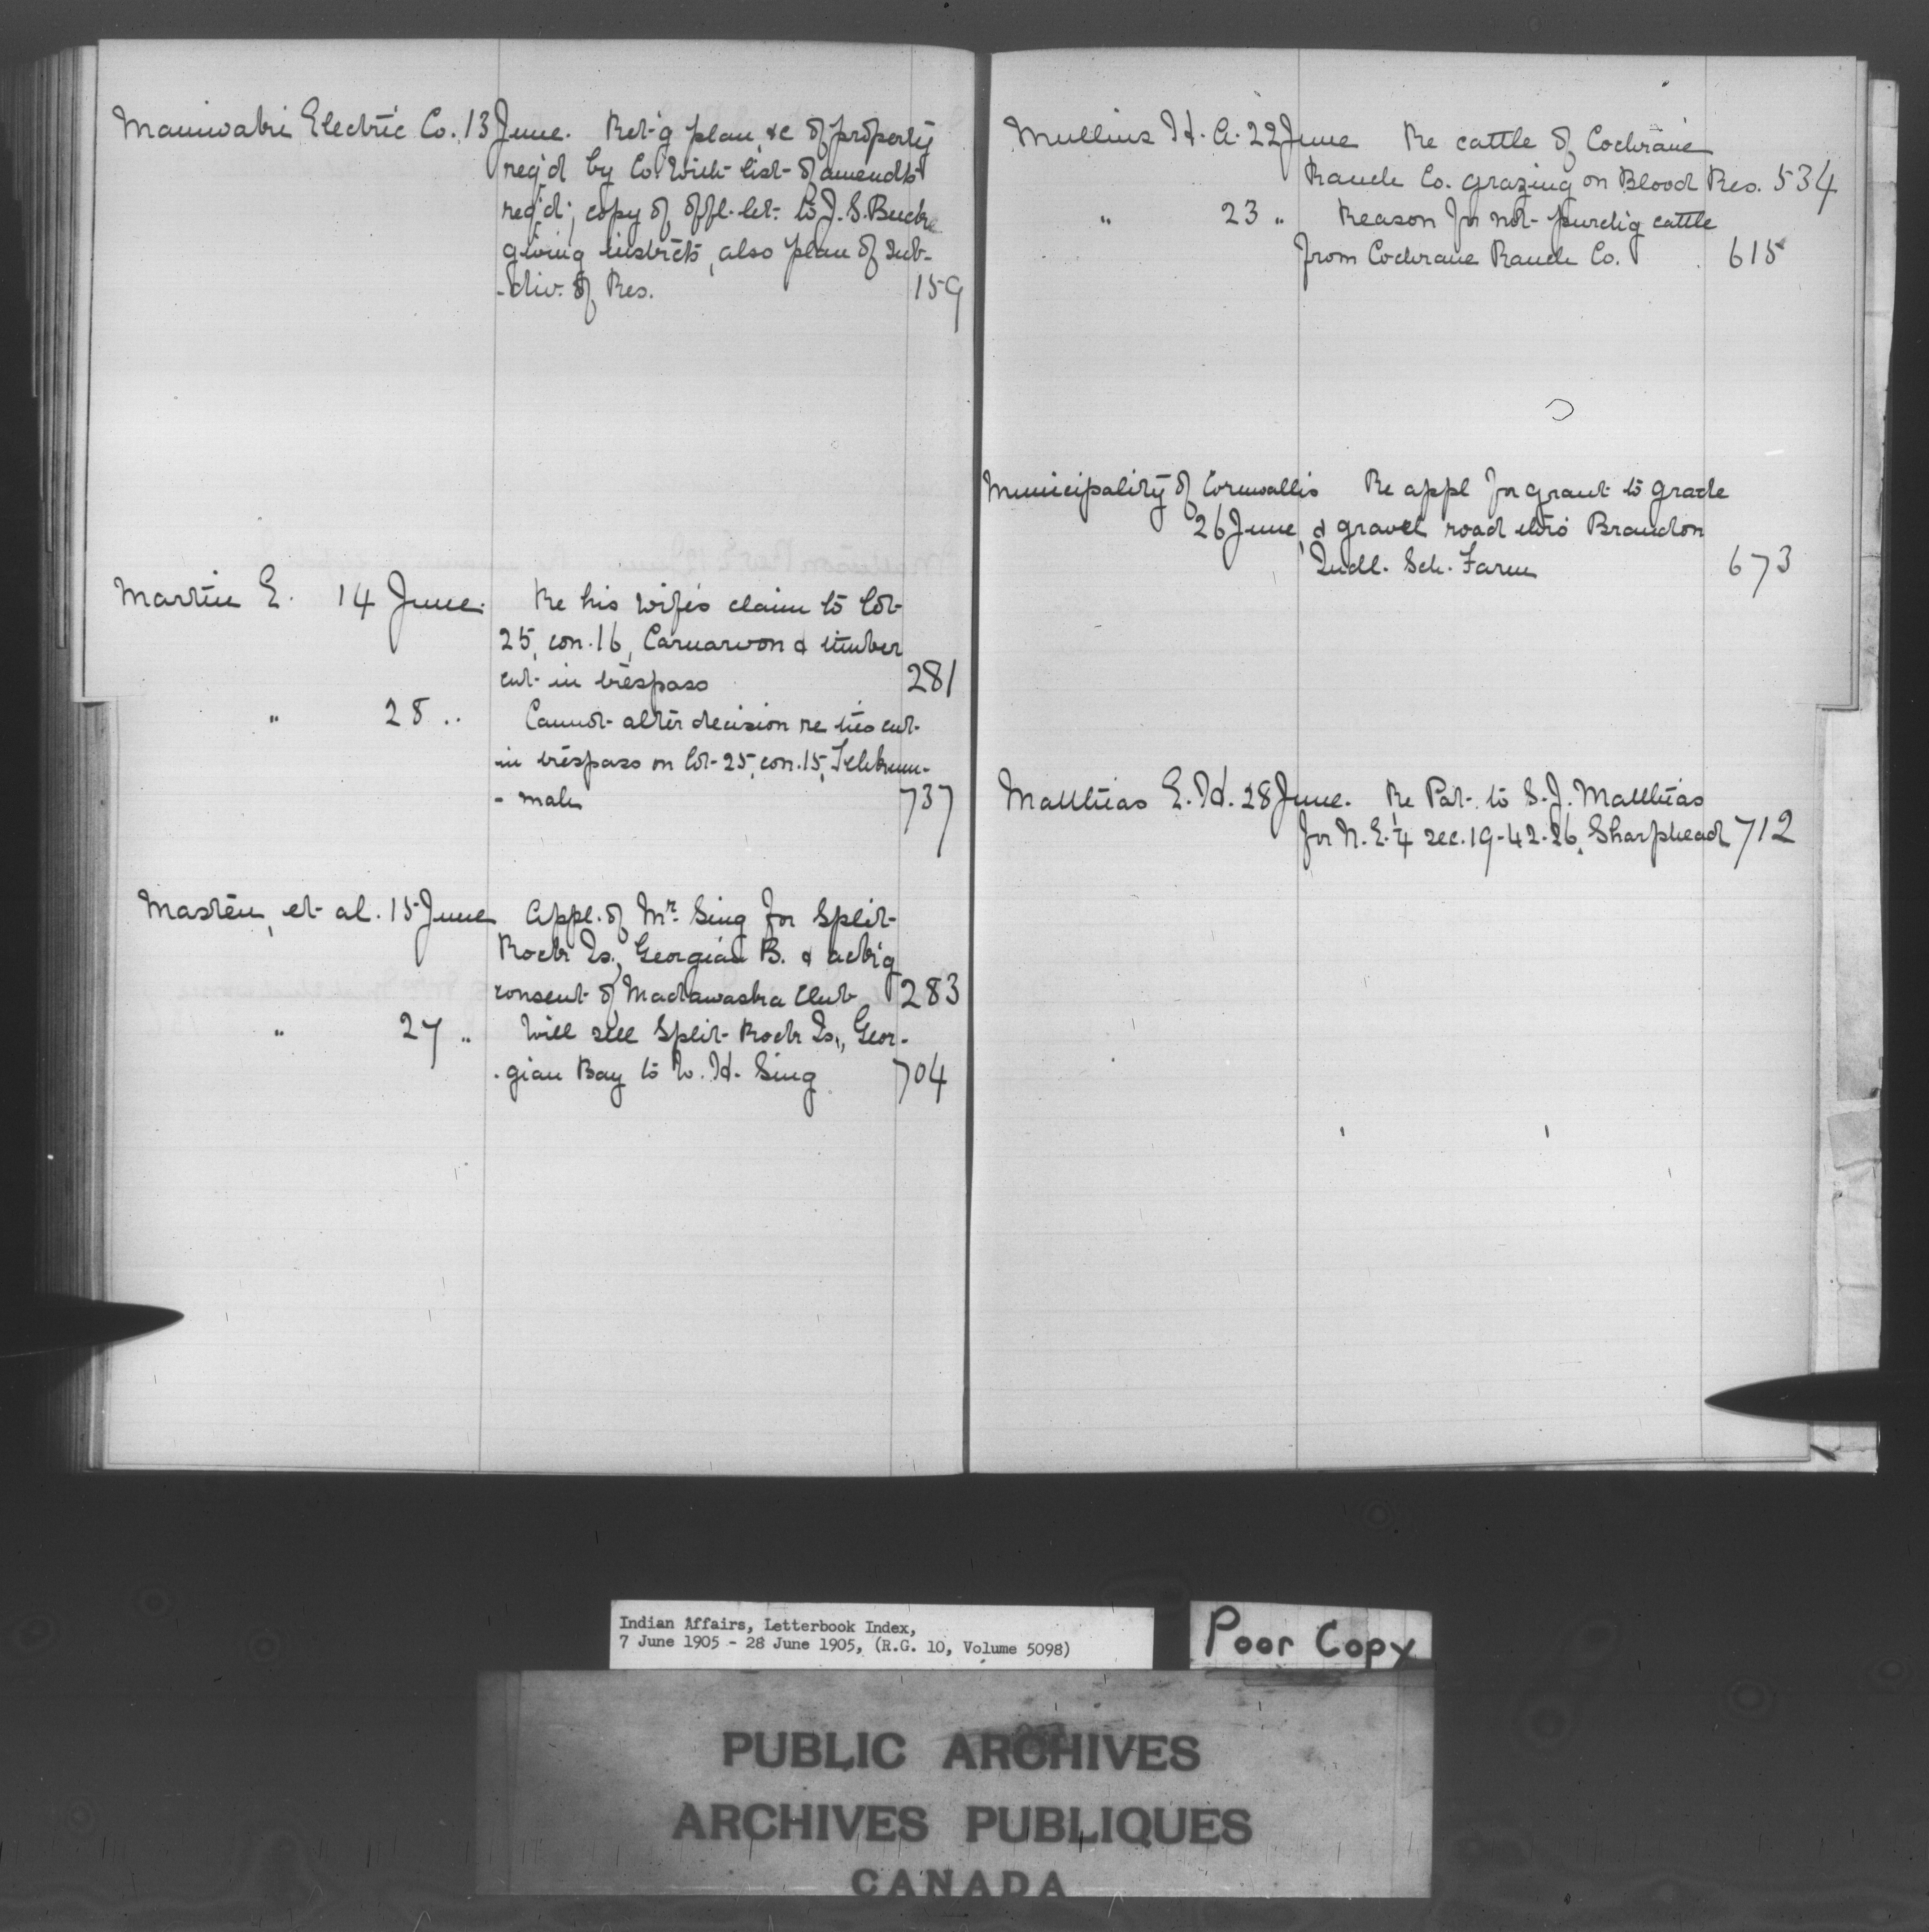 Maniwaki Electric Co. 13 June. Ret'g plan, &c of property
req'd by Co. with list of amendts
req'd; copy of offl. let. to J. S.
giving instrcts, also plan of sub-
-div. of Res. 159
Martin E. 14 June. Re his wife's claim to lot
25, con. 16, Carnarvon & timber
cut in trespass 281
" 28 " Cannot alter decision re ties cut
in trespass on lot 25, con. 15, Tehkum-
-mah 737
Masten, et al. 15 June Appl. of Mr. Sing for Split
Rock Is., Georgian B. & ack'g
consent of Madawaska Club 283
" 27 " Will sell Split Rock Is., Geor-
-gian Bay to W. H. Sing 704
Mullins H. A. 22 June Re cattle of Cochrane
Ranch Co. grazing on Blood Res. 534
" 23 " Reason for not purch'g cattle
from Cochrane Ranch Co. 615
Municipality of Cornwallis Re appl for grant to grade
26 June, & gravel road thro' Brandon
Indl. Sch. Farm 673
Matthias E. H. 28 June. Re Pat. to S. J. Matthias
for N. E. ¼ sec. 19-42-26, Sharphead 712
Indian Affairs, Letterbook Index,
7 June 1905 - 28 June 1905, (R.G. 10, Volume 5098)
Poor Copy
PUBLIC ARCHIVES
ARCHIVES PUBLIQUES
CANADA